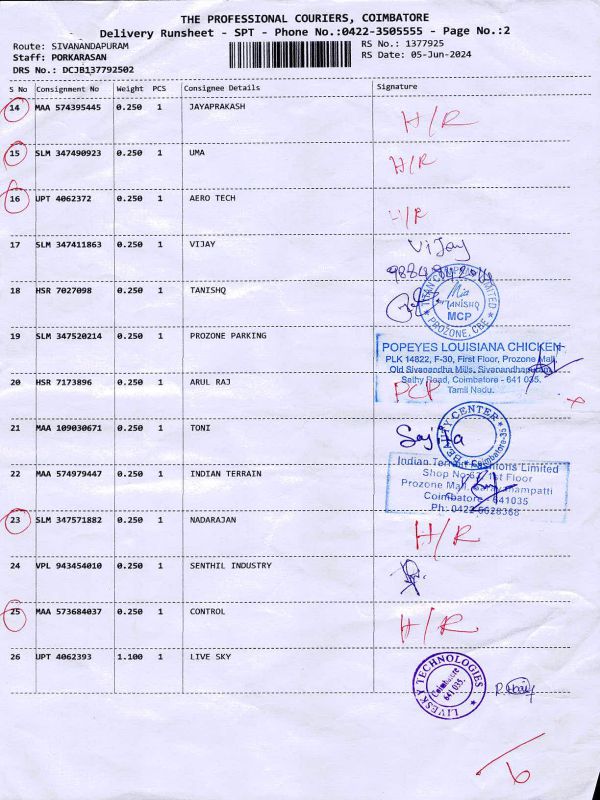 THE PROFESSIONAL COURIERS, COIMBATORE
Delivery Runsheet - SPT - Phone No.:0422-3505555 - Page No.:2
Route: SIVANANDAPURAM RS No.: 1377925
Staff: PORKARASAN RS Date: 05-Jun-2024
DRS No.: DCJB137792502
S No Consignment No Weight PCS Consignee Details Signature
14 MAA 574395445 0.250 1 JAYAPRAKASH H/R
15 SLM 347490923 0.250 1 UMA H/R
16 UPT 4062372 0.250 1 AERO TECH H/R
17 SLM 347411863 0.250 1 VIJAY Vijay
18 HSR 7027098 0.250 1 TANISHQ
TITAN COMPANY LIMITED
Mia
TANISHQ
MCP
PROZONE, CBE
19 SLM 347520214 0.250 1 PROZONE PARKING
POPEYES LOUISIANA CHICKEN
PLK 14822, F-30, First Floor, Prozone Mall,
Old Sivanandha Mills, Sivanandhapuram,
Sathy Road, Coimbatore - 641 035.
Tamil Nadu.
20 HSR 7173896 0.250 1 ARUL RAJ
21 MAA 109030671 0.250 1 TONI
BEAUTY CENTER
Coimbatore-35
22 MAA 574979447 0.250 1 INDIAN TERRAIN
Indian Terrain Fashions Limited
1st Floor
Prozone Mall
Coimbatore - 641035
Ph: 0422-6628368
23 SLM 347571882 0.250 1 NADARAJAN H/R
24 VPL 943454010 0.250 1 SENTHIL INDUSTRY
25 MAA 573684037 0.250 1 CONTROL H/R
26 UPT 4062393 1.100 1 LIVE SKY
LIVESKY TECHNOLOGIES
Coimbatore
641 035.
6